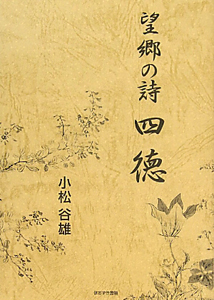 望郷の詩 四徳
小松 谷雄